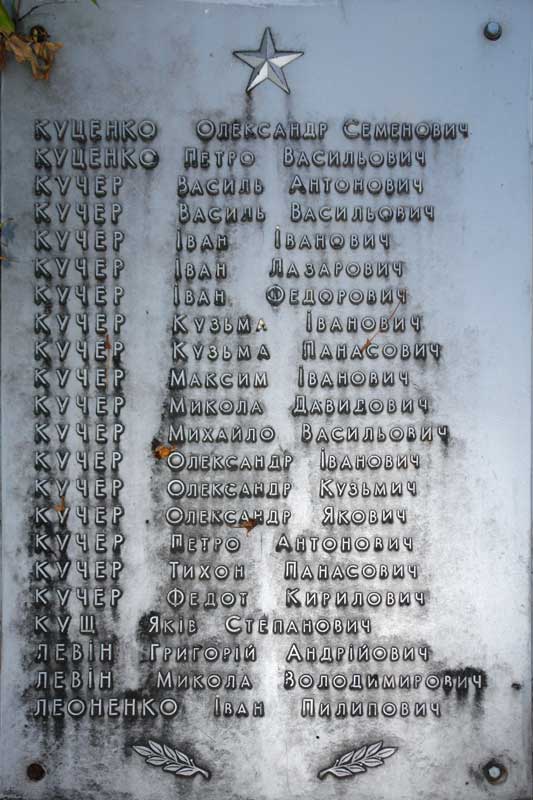 КУЦЕНКО ОЛЕКСАНДР СЕМЕНОВИЧ
КУЦЕНКО ПЕТРО ВАСИЛЬОВИЧ
КУЧЕР ВАСИЛЬ АНТОНОВИЧ
КУЧЕР ВАСИЛЬ ВАСИЛЬОВИЧ
КУЧЕР ІВАН ІВАНОВИЧ
КУЧЕР ІВАН ЛАЗАРОВИЧ
КУЧЕР ІВАН ФЕДОРОВИЧ
КУЧЕР КУЗЬМА ІВАНОВИЧ
КУЧЕР КУЗЬМА ПАНАСОВИЧ
КУЧЕР МАКСИМ ІВАНОВИЧ
КУЧЕР МИКОЛА ДАВИДОВИЧ
КУЧЕР МИХАЙЛО ВАСИЛЬОВИЧ
КУЧЕР ОЛЕКСАНДР ІВАНОВИЧ
КУЧЕР ОЛЕКСАНДР КУЗЬМИЧ
КУЧЕР ОЛЕКСАНДР ЯКОВИЧ
КУЧЕР ПЕТРО АНТОНОВИЧ
КУЧЕР ТИХОН ПАНАСОВИЧ
КУЧЕР ФЕДОТ КИРИЛОВИЧ
КУЩ ЯКІВ СТЕПАНОВИЧ
ЛЕВІН ГРИГОРІЙ АНДРІЙОВИЧ
ЛЕВІН МИКОЛА ВОЛОДИМИРОВИЧ
ЛЕОНЕНКО ІВАН ПИЛИПОВИЧ